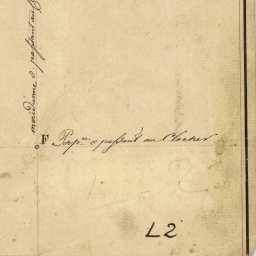 méridienne o passant au
F Perp.re o passant au Clocher
L2